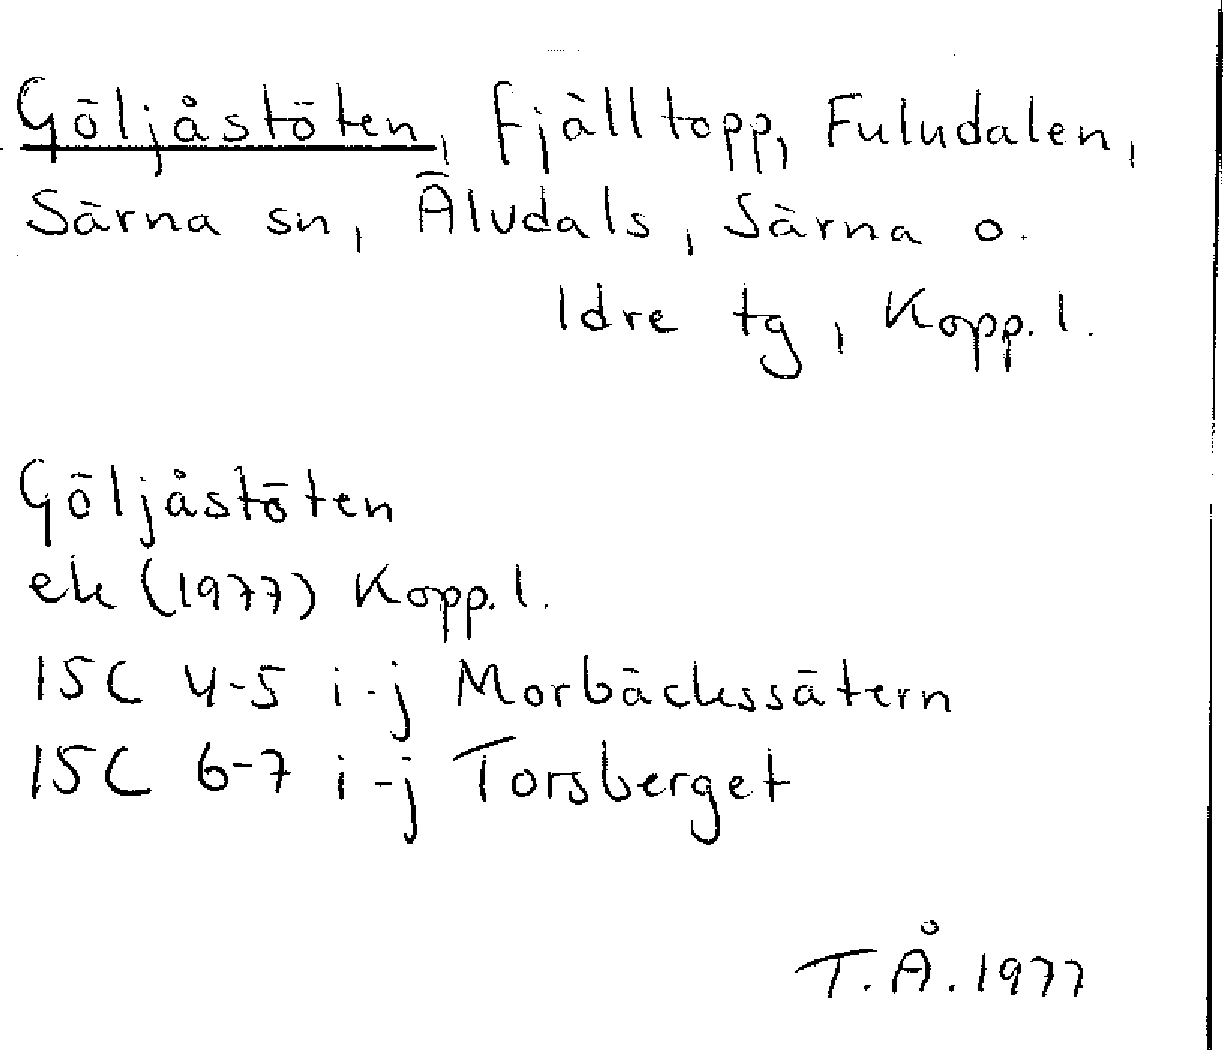 Göljåstöten, fjälltopp, Fuludalen,
Särna sn, Älvdals, Särna o.
Idre tg, Kopp. l.
Göljåstöten
ek (1977) Kopp. l.
15C 4-5 i-j Morbäckssätern
15C 6-7 i-j Torsberget
T.Å. 1977